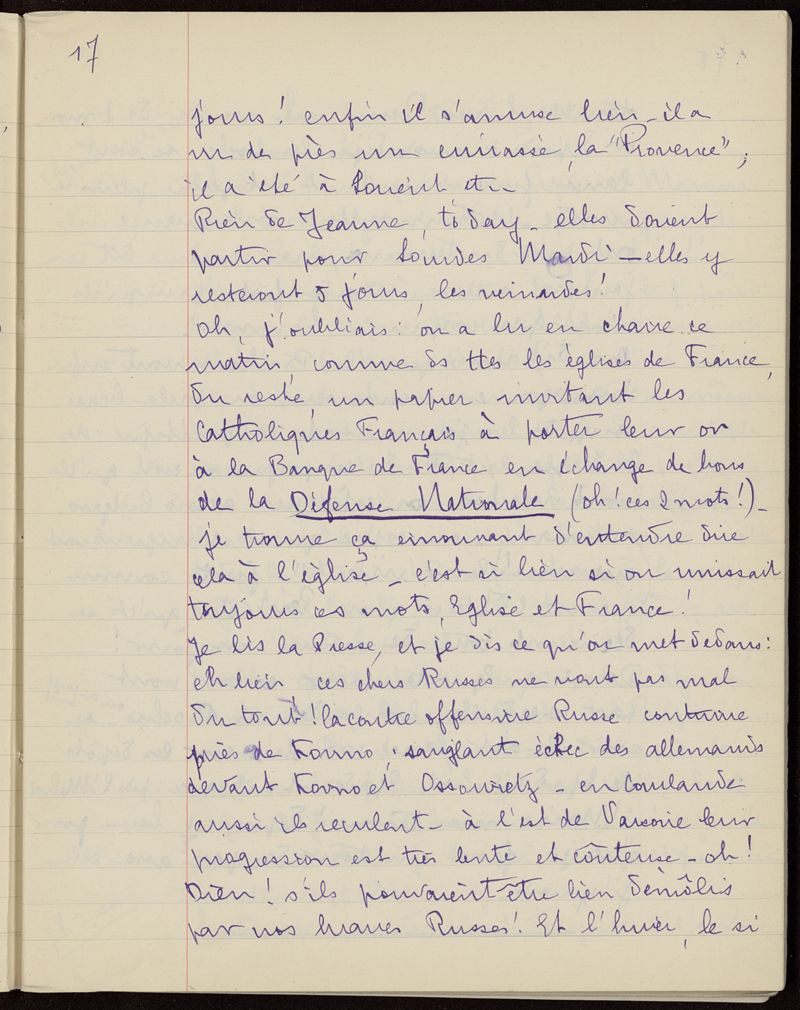 17
jours! enfin il s'amuse bien_il a
vu de près un cuirassé, la "Provence",
il a été à Lorient etc
Rien de Jeanne, to day_ elles doivent
partir pour Lourdes Mardi _ elles y
resteront 5 jours, les veinardes!
Oh, j'oubliais: on a lu en chaire ce
matin, comme ds ttes les églises de France,
du reste, un papier invitant les
Catholiques Français à porter leur or
à la Banque de France en échange de bons
de la Défense Nationale (oh! ces 2 mots!)_
je trouve ça émouvant d'entendre dire
cela à l'église _ c'est si bien si on unissait
toujours ces mots, Eglise et France!
Je lis la Presse, et je dis ce qu'on met dedans:
eh bien ces chers Russes ne vont pas mal
du tout! la contre offensive Russe continue
près de Kovno; sanglant échec des allemands
devant Kovno et Ossowietz _ en Courlande
aussi ils reculent _ à l'est de Varsovie leur
progression est très lente et coûteuse _ oh!
Dieu! s'ils pouvaient être bien démolis
par nos braves Russes! Et l'hiver, le si